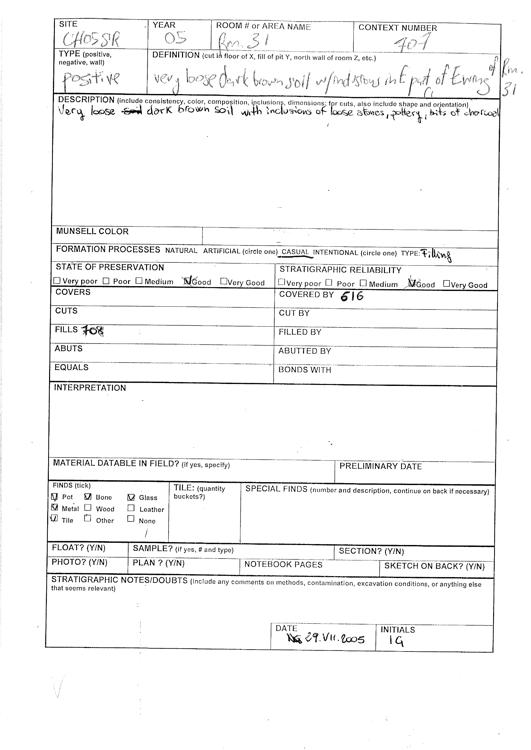 SITE YEAR ROOM # or AREA NAME CONTEXT NUMBER
CH05SR 05 Rm. 31 407
TYPE (positive, negative, wall) DEFINITION (cut in floor of X, fill of pit Y, north wall of room Z, etc.)
positive very loose dark brown soil w/inclusions in E part of of Rm. 31
DESCRIPTION (include consistency, color, composition, inclusions, dimensions; for cuts, also include shape and orientation)
Very loose dark brown soil with inclusions of loose stones, pottery, bits of charcoal
MUNSELL COLOR
FORMATION PROCESSES NATURAL ARTIFICIAL (circle one) CASUAL INTENTIONAL (circle one) TYPE: Filling
STATE OF PRESERVATION STRATIGRAPHIC RELIABILITY
Very poor Poor Medium Good Very Good Very poor Poor Medium Good Very Good
COVERS COVERED BY 616
CUTS CUT BY
FILLS 708 FILLED BY
ABUTS ABUTTED BY
EQUALS BONDS WITH
INTERPRETATION
MATERIAL DATABLE IN FIELD? (if yes, specify) PRELIMINARY DATE
FINDS (tick) TILE: (quantity buckets?) SPECIAL FINDS (number and description, continue on back if necessary)
Pot Bone Glass
Metal Wood Leather
Tile Other None
FLOAT? (Y/N) SAMPLE? (if yes, # and type) SECTION? (Y/N)
PHOTO? (Y/N) PLAN ? (Y/N) NOTEBOOK PAGES SKETCH ON BACK? (Y/N)
STRATIGRAPHIC NOTES/DOUBTS (include any comments on methods, contamination, excavation conditions, or anything else
that seems relevant)
DATE INITIALS
29.VII.2005 IG